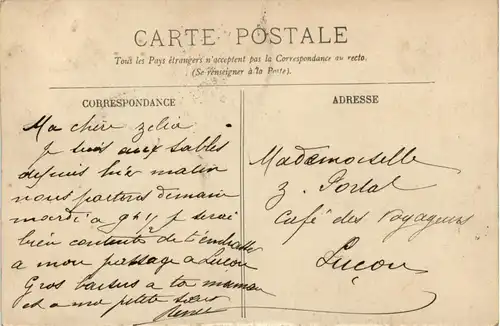 CARTE POSTALE
Tous les Pays étrangers n'acceptent pas la Correspondance au recto.
(Se renseigner à la Poste).
CORRESPONDANCE
Ma cher Zelia
je suis aux sables
depuis hier matin
nous partons demain
mardi a 9h 1/2 je serai
bien contente de t'embrasser
a mon passage a Luçon
Gros baisers a ta maman
et a ma petite
ADRESSE
Mademoiselle
Z. Portal
Café des Voyageurs
Luçon